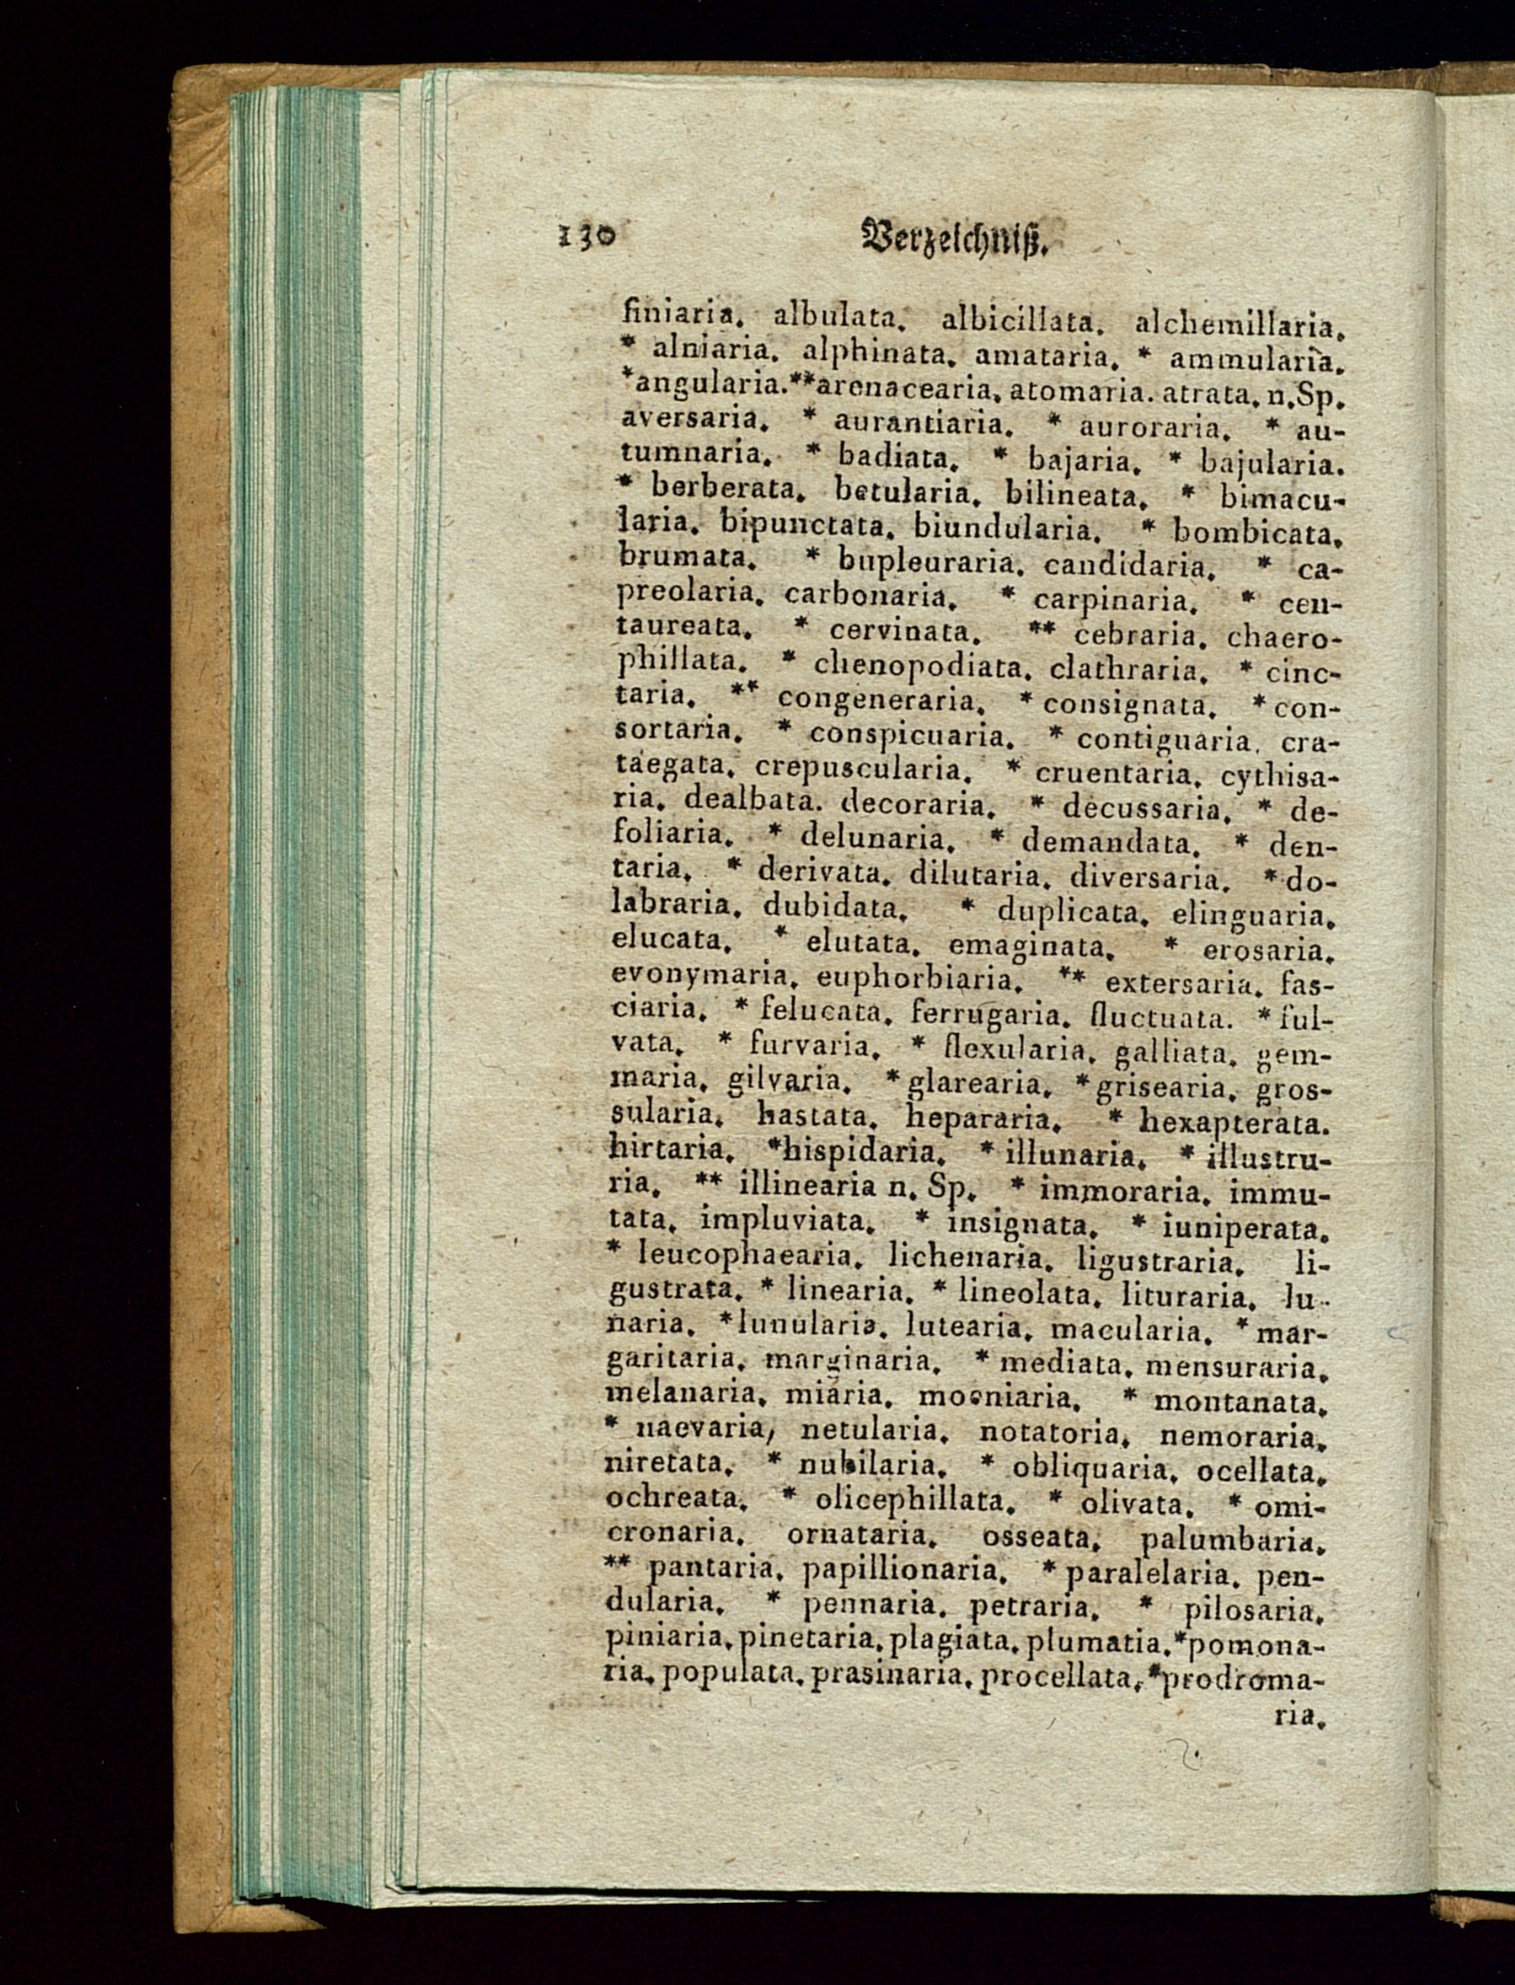 130 Verzeichniß.
finiaria. albulata. albicillata. alchemillaria.
* alniaria. alphinata. amataria. * ammularia.
*angularia. **arenacearia. atomaria. atrata. n. Sp.
aversaria. * aurantiaria. * auroraria. * au-
tumnaria. * badiata. * bajaria. * bajularia.
* berberata. betularia. bilineata. * bimacu-
laria. bipunctata. biundularia. * bombicata.
brumata. * bupleuraria. candidaria. * ca-
preolaria. carbonaria. * carpinaria. * cen-
taureata. * cervinata. ** cebraria. chaero-
phillata. * chenopodiata. clathraria. * cinc-
taria. ** congeneraria. * consignata. * con-
sortaria. * conspicuaria. * contiguaria. cra-
taegata. crepuscularia. * cruentaria. cythisa-
ria. dealbata. decoraria. * decussaria. * de-
foliaria. * delunaria. * demandata. * den-
taria. * derivata. dilutaria. diversaria. * do-
labraria. dubidata. * duplicata. elinguaria.
elucata. * elutata. emaginata. * erosaria.
evonymaria. euphorbiaria. ** extersaria. fas-
ciaria. * felucata. ferrugaria. fluctuata. * ful-
vata. * furvaria. * flexularia. galliata. gem-
maria. gilvaria. * glarearia. * grisearia. gros-
sularia. hastata. hepararia. * hexapterata.
hirtaria. *hispidaria. * illunaria. * illustru-
ria. ** illinearia n. Sp. * immoraria. immu-
tata. impluviata. * insignata. * iuniperata.
* leucophaearia. lichenaria. ligustraria. li-
gustrata. * linearia. * lineolata. lituraria. lu-
naria. *lunularia. lutearia. macularia. * mar-
garitaria. marginaria. * mediata. mensuraria.
melanaria. miaria. moeniaria. * montanata.
* naevaria, netularia. notatoria. nemoraria.
niretata. * nubilaria. * obliquaria. ocellata.
ochreata. * olicephillata. * olivata. * omi-
cronaria. ornataria. osseata. palumbaria.
** pantaria. papillionaria. * paralelaria. pen-
dularia. * pennaria. petraria. * pilosaria.
piniaria. pinetaria. plagiata. plumatia. *pomona-
ria. populata. prasinaria. procellata. *prodroma-
ria.